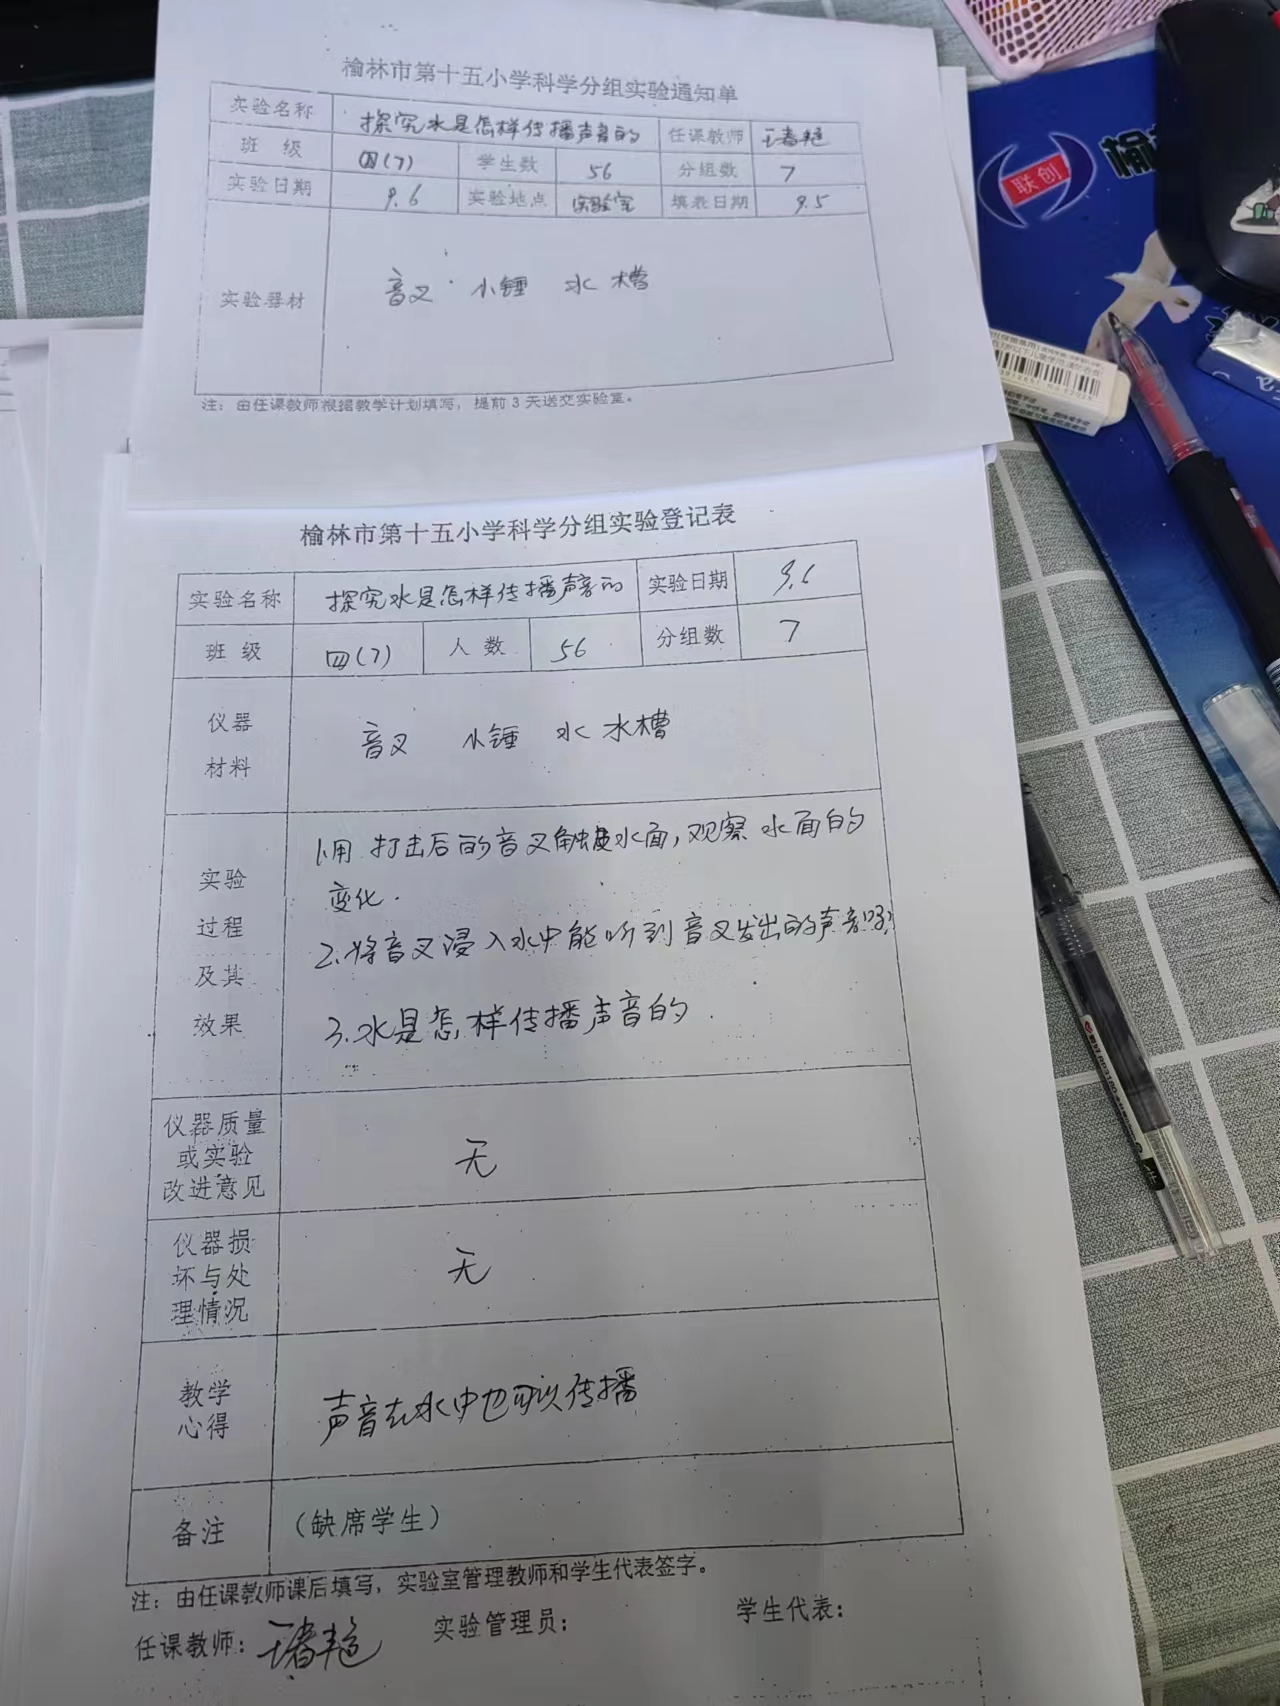 榆林市第十五小学科学分组实验通知单
实验名称 探究水是怎样传播声音的 任课教师 王春艳
班 级 四(7) 学生数 56 分组数 7
实验日期 9.6 实验地点 实验室 填表日期 9.5
实验器材 音叉 小锤 水 槽
注：由任课教师根据教学计划填写，提前 3 天送交实验室。
榆林市第十五小学科学分组实验登记表
实验名称 探究水是怎样传播声音的 实验日期 9.6
班 级 四(7) 人 数 56 分组数 7
仪器
材料
音叉 小锤 水 水槽
实验
过程
及其
效果
1.用 打击后的音叉触碰水面，观察 水面的
变化.
2.将音叉浸入水中能听到音叉发出的声音吗?
3.水是怎样传播声音的.
仪器质量
或实验
改进意见
无
仪器损
坏与处
理情况
无
教学
心得
声音在水中也可以传播
备注 （缺席学生）
注：由任课教师课后填写，实验室管理教师和学生代表签字。
任课教师：王春艳 实验管理员： 学生代表：
联创
榆